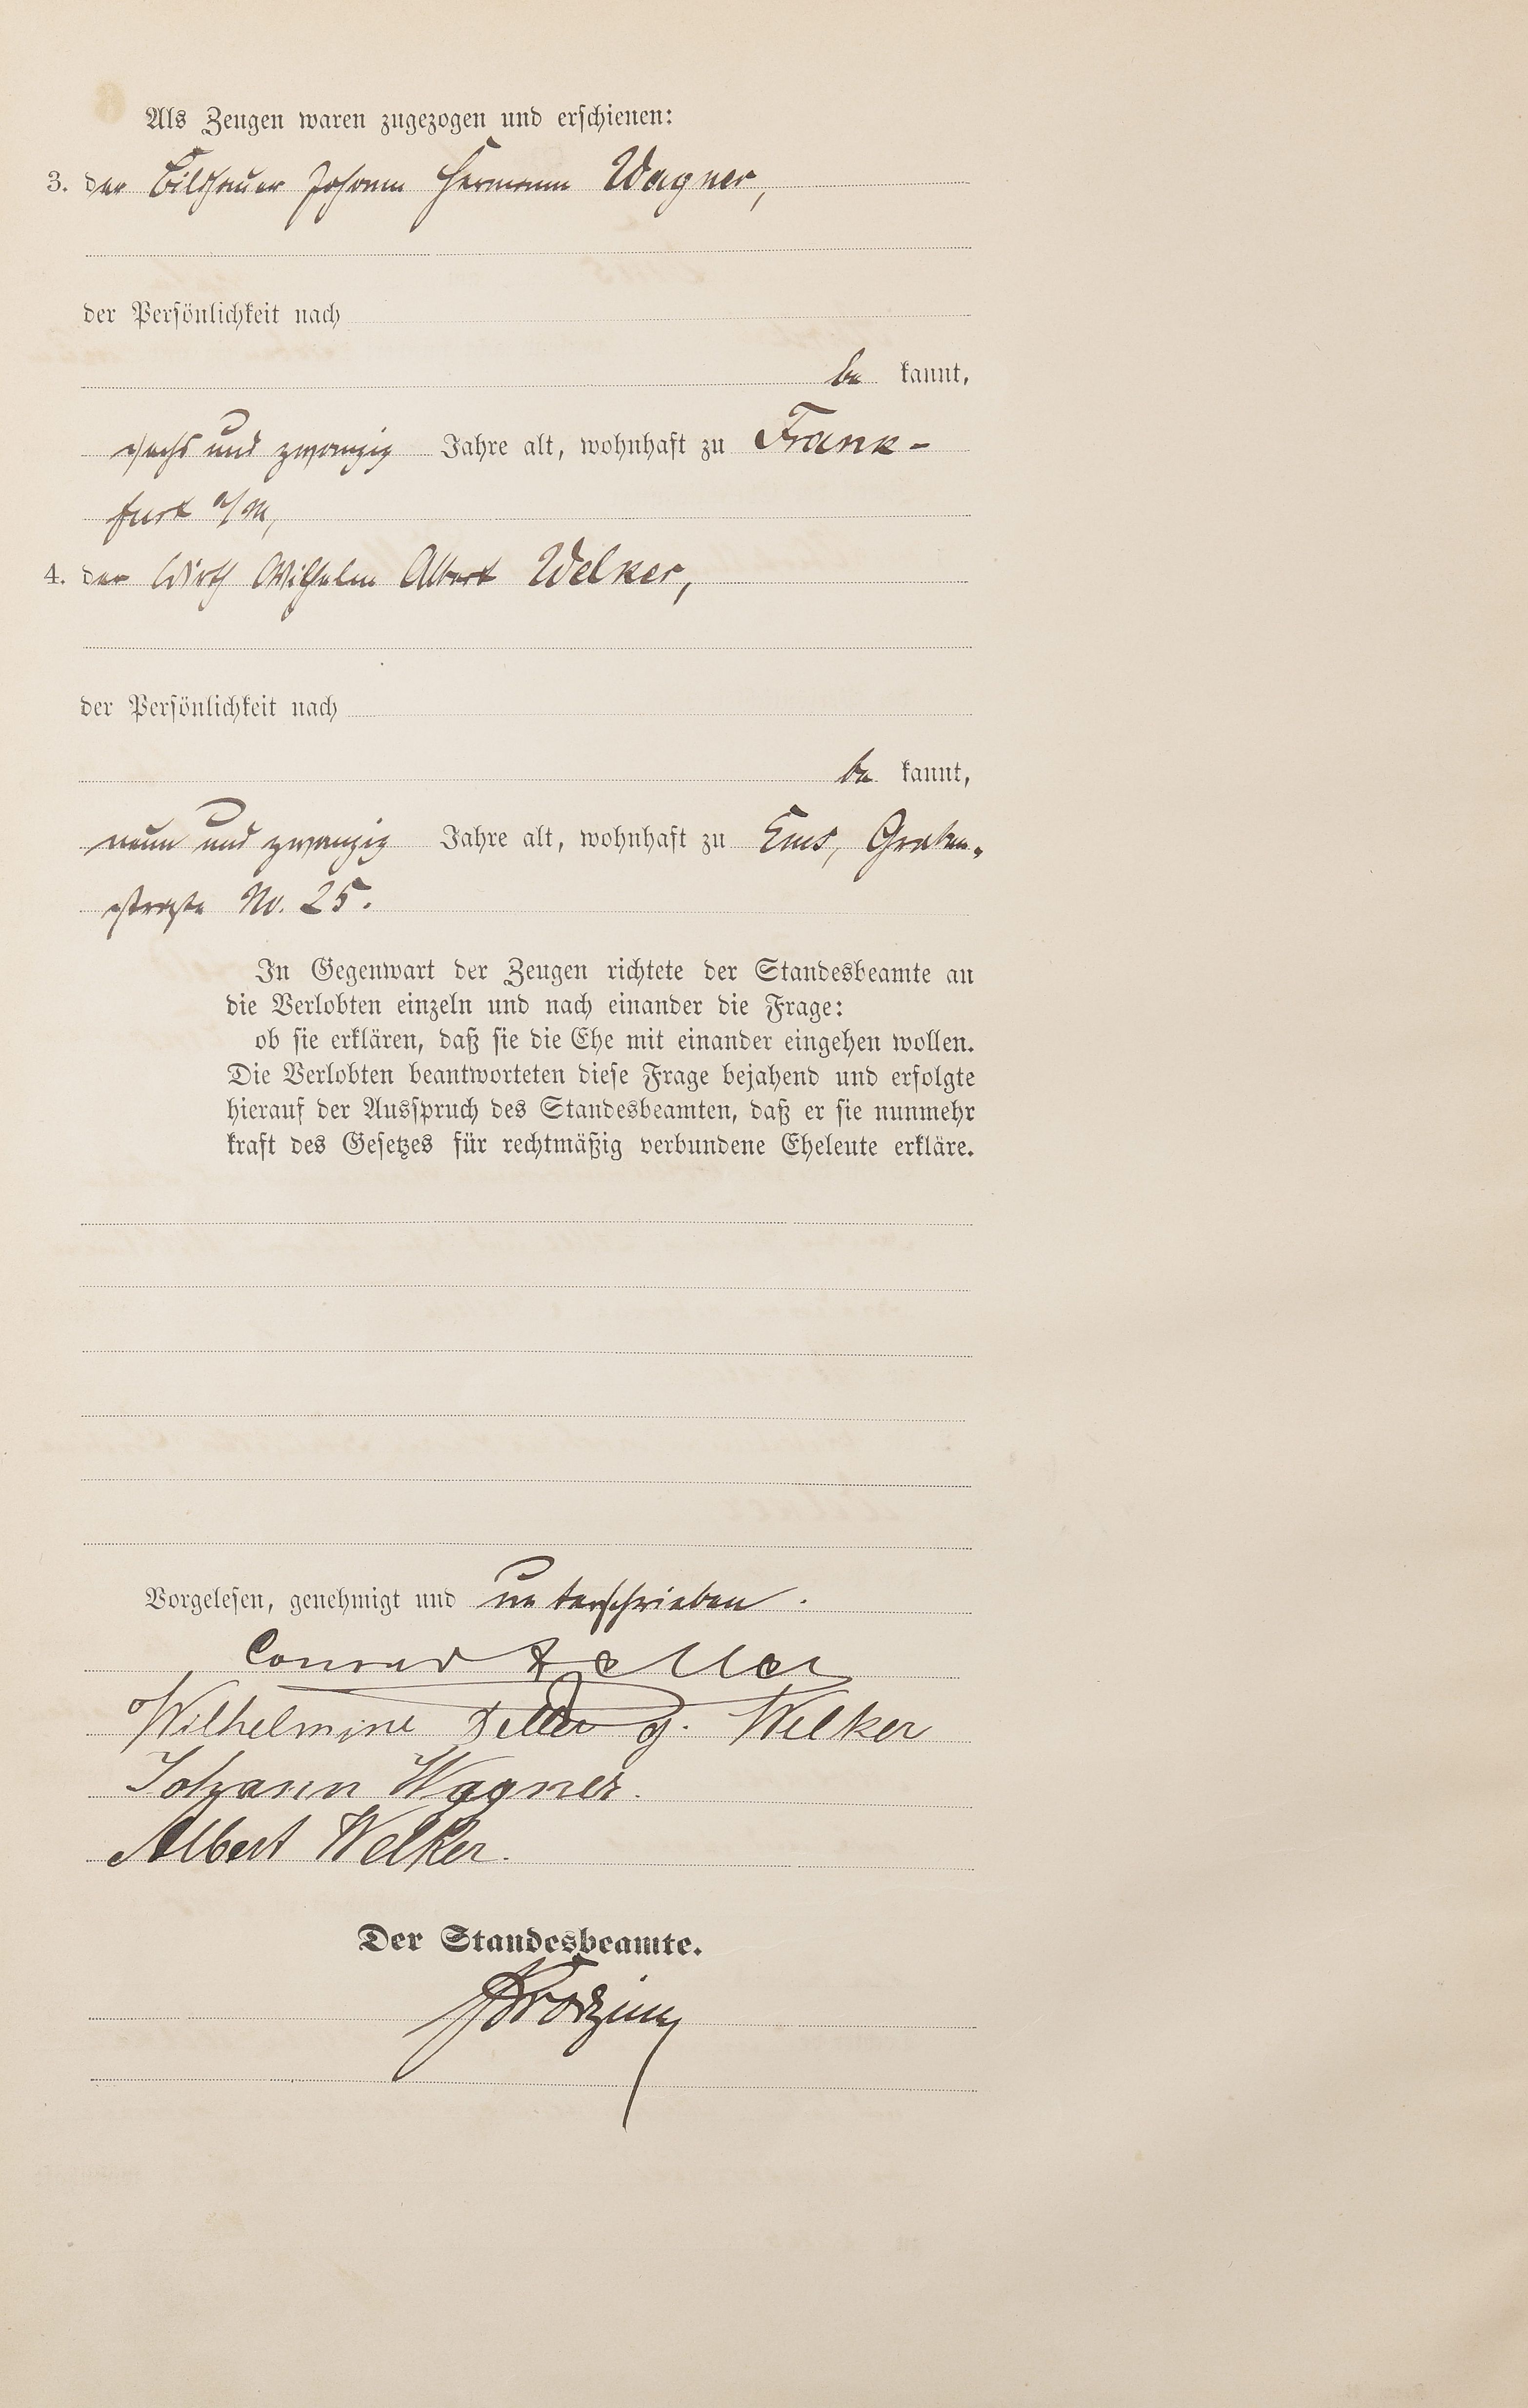 Als Zeugen waren zugezogen und erschienen:
3. der Bildhauer Johann Hermann Wagner,
der Persönlichkeit nach
be kannt,
sechs und zwanzig Jahre alt, wohnhaft zu Frank-
furt a/M,
4. der Wirth Wilhelm Albert Welker,
der Persönlichkeit nach
be kannt,
neun und zwanzig Jahre alt, wohnhaft zu Ems, Graben-
straße No. 25.
In Gegenwart der Zeugen richtete der Standesbeamte an
die Verlobten einzeln und nach einander die Frage:
ob sie erklären, daß sie die Ehe mit einander eingehen wollen.
Die Verlobten beantworteten diese Frage bejahend und erfolgte
hierauf der Ausspruch des Standesbeamten, daß er sie nunmehr
kraft des Gesetzes für rechtmäßig verbundene Eheleute erkläre.
Vorgelesen, genehmigt und unterschrieben.
Conrad
Wilhelmine g. Welker
Johann Wagner.
Albert Welker.
Der Standesbeamte.